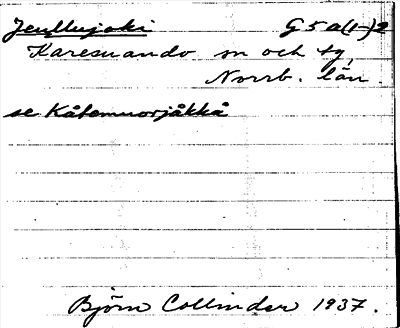 Jeullujoki G5a(1-)2
Karesuando sn och tg,
Norrb. län.
se Kåtemuorjåkkå
Björn Collinder 1937.